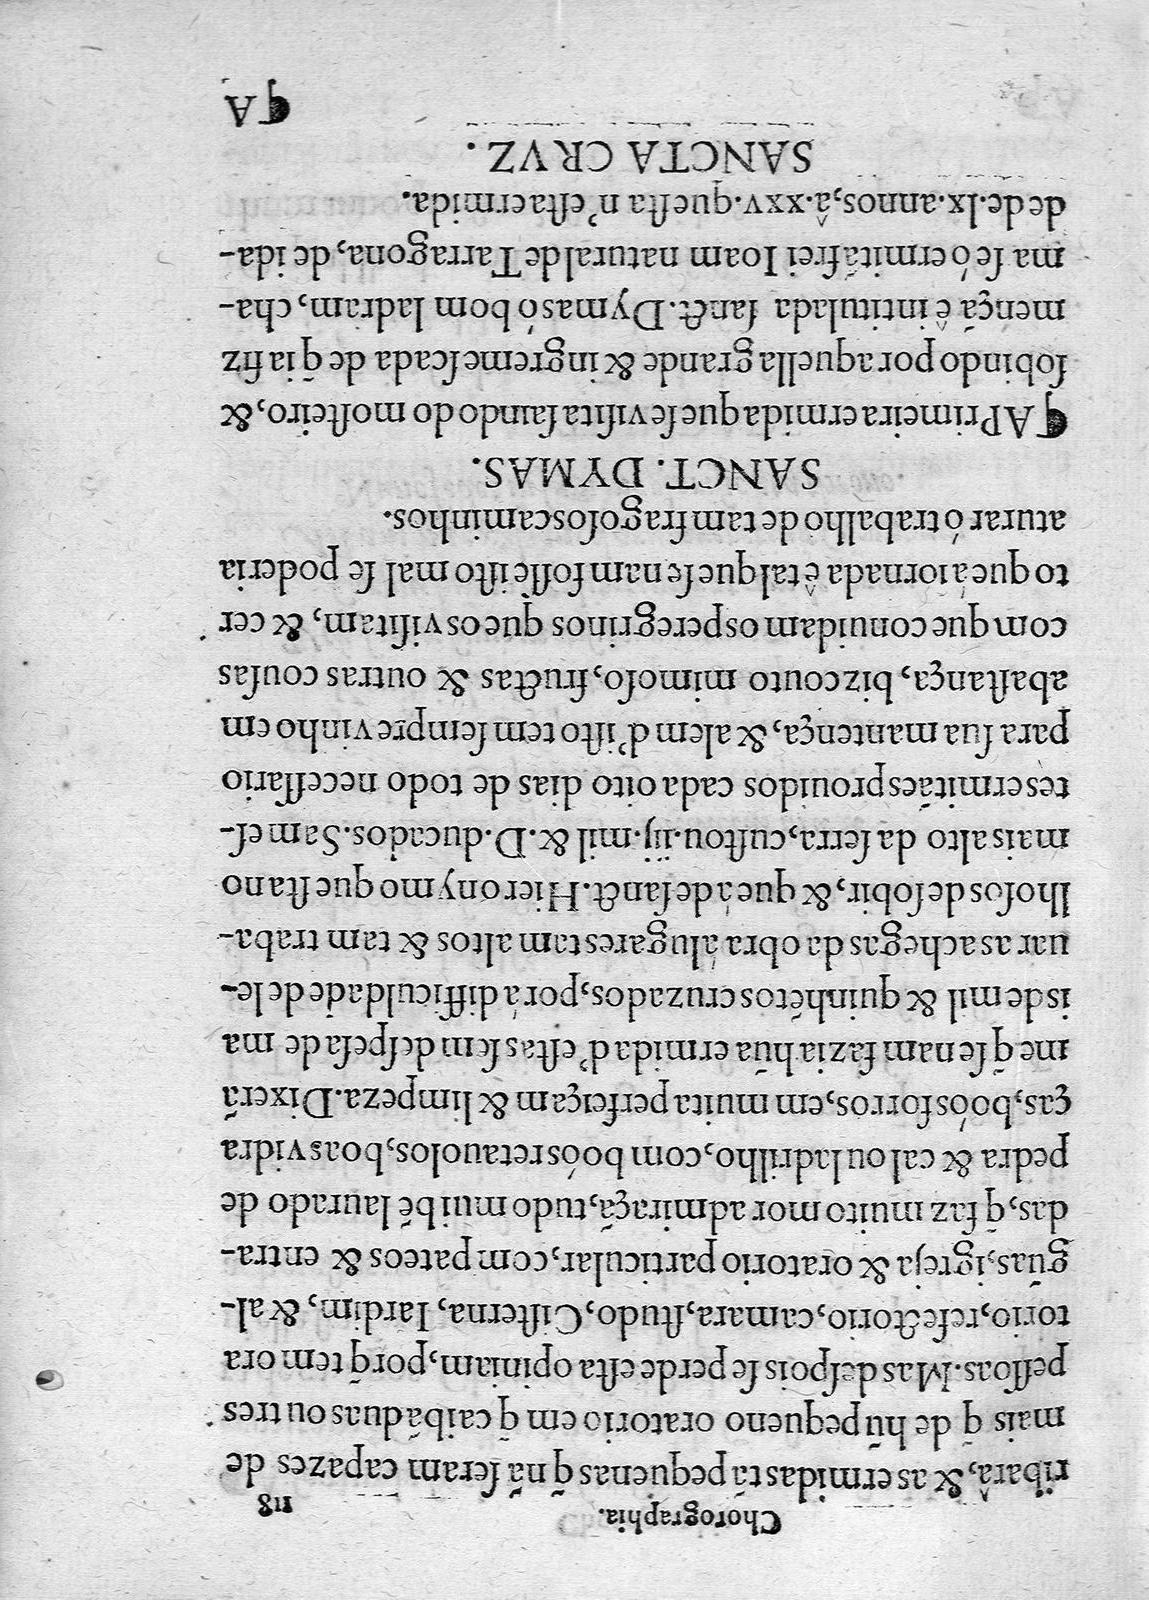 Chorographia. 118
ribarâ, & as ermidas tã pequenas q̃ nã seram capazes de
mais q̃ de hũ pequeno oratorio em q̃ caibã duas ou tres
pessoas. Mas despois se perde esta opiniam, porq̃ tem ora
torio, refectorio, camara, studo, Cisterna, Iardim, & al-
gũas, igreja & oratorio particular, com pateos & entra-
das, q̃ faz muito mor admiraçã, tudo mui bẽ laurado de
pedra & cal ou ladrilho, com boõs retauolos, boas vidra
ças, boõs forros, em muita perfeiçam & limpeza. Dixerã
me q̃ se nam fazia hũa ermida d'estas sem despesa de ma
is de mil & quinhẽtos cruzados, por á difficuldade de le-
uar as achegas da obra á lugares tam altos & tam traba-
lhosos de sobir, & que á de sanct. Hieronymo que sta no
mais alto da serra, custou .iij. mil & .D. ducados. Sam es-
tes ermitães prouidos cada oito dias de todo necessario
para sua mantença, & alem d'isto tem sempre vinho em
abastança, bizcouto mimoso, fructas & outras cousas
com que conuidam os peregrinos que os visitam, & cer
to que á iornada ê tal que se nam fosse isto mal se poderia
aturar ó trabalho de tam fragosos caminhos.
SANCT. DYMAS.
¶ A Primeira ermida que se visita saindo do mosteiro, &
sobindo por aquella grande & ingreme scada de q̃ ia fiz
mençã ê intitulada sanct. Dymas ó bom ladram, cha-
ma se ó ermitã frei Ioam natural de Tarragona, de ida-
de de .lx. annos, â .xxv. que sta n'esta ermida.
SANCTA CRVZ.
¶ A